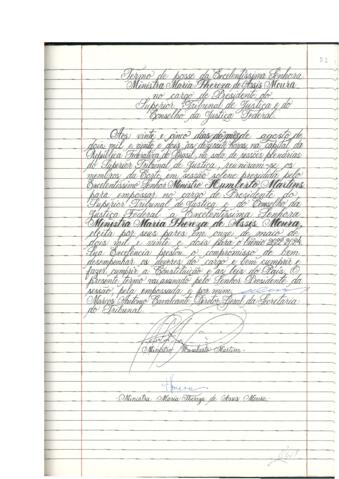 Termo de posse da Excelentíssima Senhora
Ministra Maria Thereza de Assis Moura,
no cargo de Presidente do
Superior Tribunal de Justiça e do
Conselho da Justiça Federal.
Aos vinte e cinco dias do mês de agosto de
dois mil e vinte e dois às dezessete horas na capital da
República Federativa do Brasil, na sala de sessões plenárias
do Superior Tribunal de Justiça, reuniram-se os
membros da Corte, em sessão solene presidida pelo
Excelentíssimo Senhor Ministro Humberto Martins
para empossar no cargo de Presidente do
Superior Tribunal de Justiça e do Conselho da
Justiça Federal a Excelentíssima Senhora
Ministra Maria Thereza de Assis Moura,
eleita por seus pares em onze de maio de
dois mil e vinte e dois para o biênio 2022-2024.
Sua Excelência prestou o compromisso de bem
desempenhar os deveres do cargo e bem cumprir e
fazer cumprir a Constituição e as leis do País. O
presente termo vai assinado pelo Senhor Presidente da
sessão, pela empossada e por mim,
Marcos Antonio Cavalcante, Diretor-Geral da Secretaria
do Tribunal.
Ministro Humberto Martins
Ministra Maria Thereza de Assis Moura